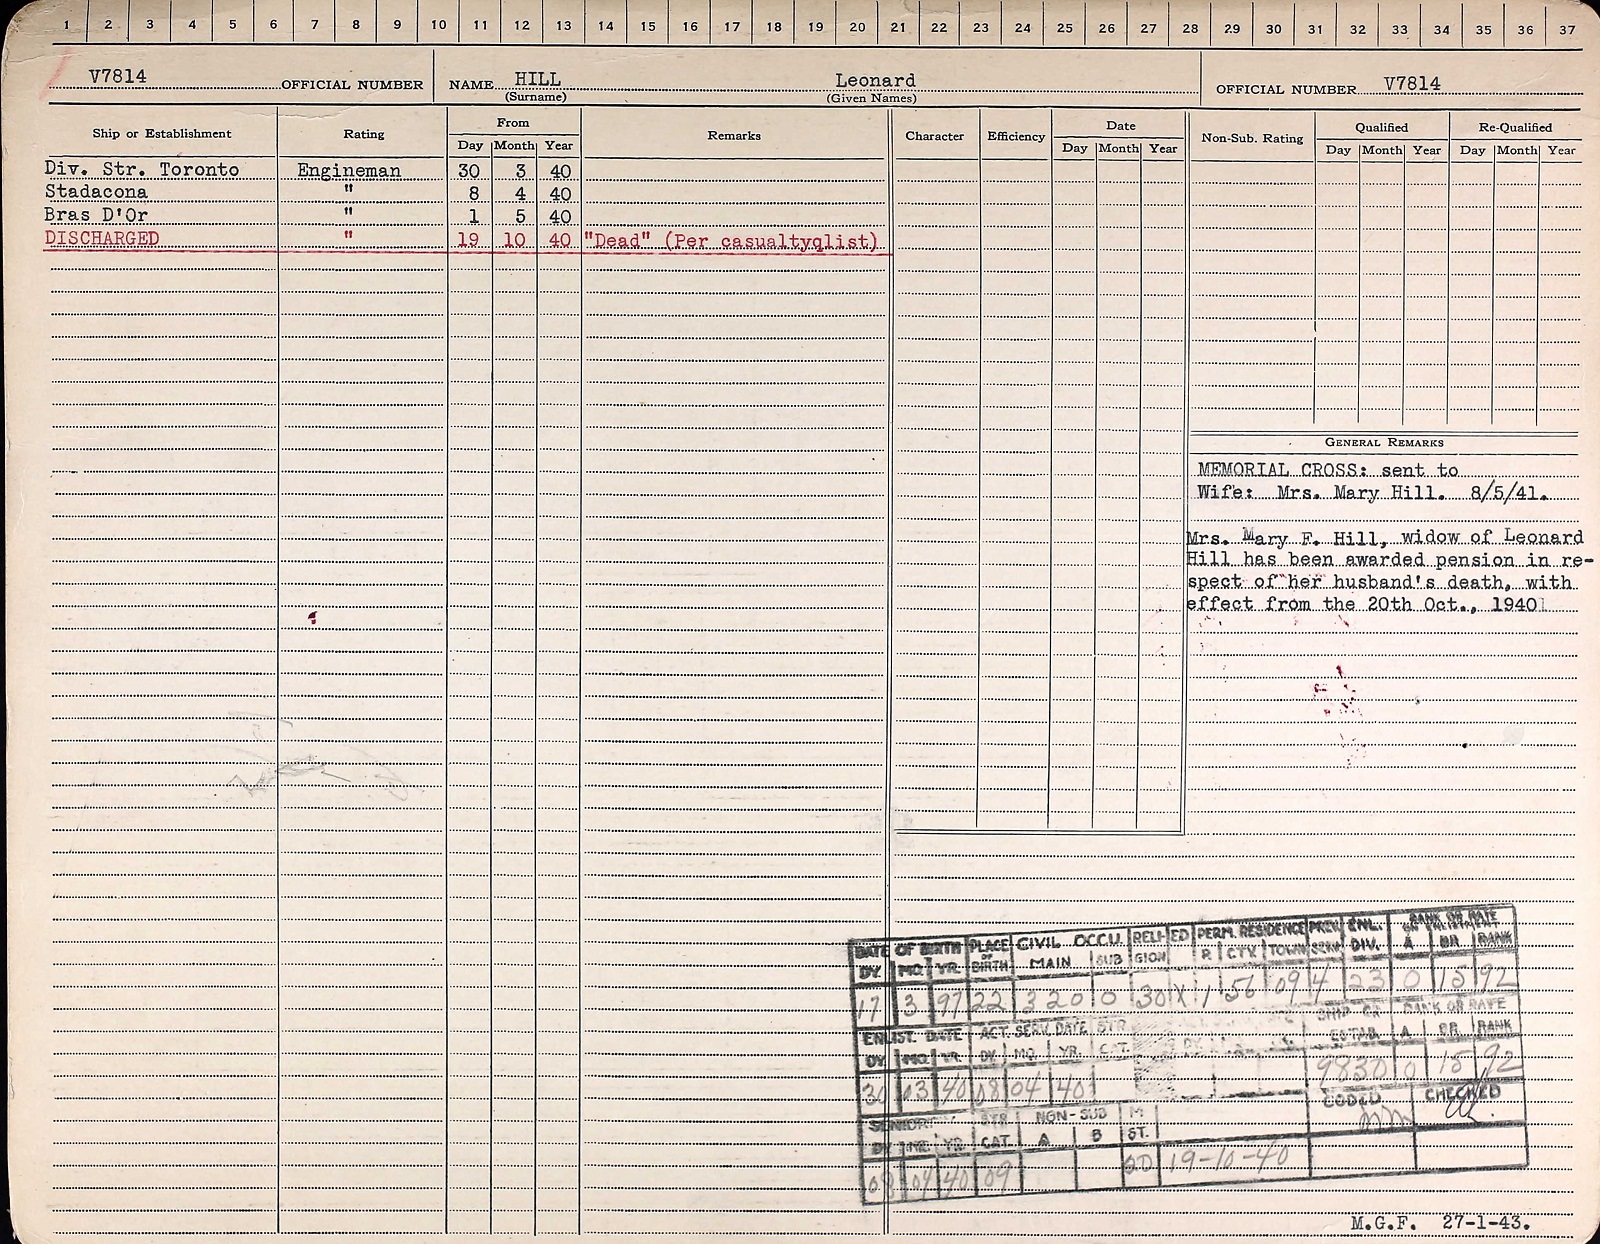 1 2 3 4 5 6 7 8 9 10 11 12 13 14 15 16 17 18 19 20 21 22 23 24 25 26 27 28 29 30 31 32 33 34 35 36 37
V7814 OFFICIAL NUMBER NAME HILL Leonard OFFICIAL NUMBER V7814
(Surname) (Given Names)
Ship or Establishment Rating From Remarks Character Efficiency Date Non-Sub. Rating Qualified Re-Qualified
Day Month Year Day Month Year Day Month Year Day Month Year
Div. Str. Toronto Engineman 30 3 40
Stadacona " 8 4 40
Bras D'Or " 1 5 40
DISCHARGED " 19 10 40 "Dead" (Per casualtyqlist)
GENERAL REMARKS
MEMORIAL CROSS: sent to
Wife: Mrs. Mary Hill. 8/5/41.
Mrs. Mary F. Hill, widow of Leonard
Hill has been awarded pension in re-
spect of her husband's death, with
effect from the 20th Oct., 1940
DATE OF BIRTH PLACE OF BIRTH CIVIL OCCU. RELIGION ED PERM. RESIDENCE PREV. SERV. ENL. DIV. RANK OR RATE
DY. MO. YR. MAIN SUB R CTY. TOWN A BR RANK
17 3 97 22 320 0 30 X 1 56 09 4 23 0 15 92
ENLIST. DATE ACT. SERV. DATE STR SHIP OR ESTAB. RANK OR RATE
DY. MO. YR. DY. MO. YR. CAT. A BR. RANK
30 03 40 08 04 40 9830 0 15 92
CODED CHECKED
SENIOR. STR CAT. NON-SUB M ST.
DY. MO. YR. A B
08 04 40 09 20 19-10-40
M.G.F. 27-1-43.